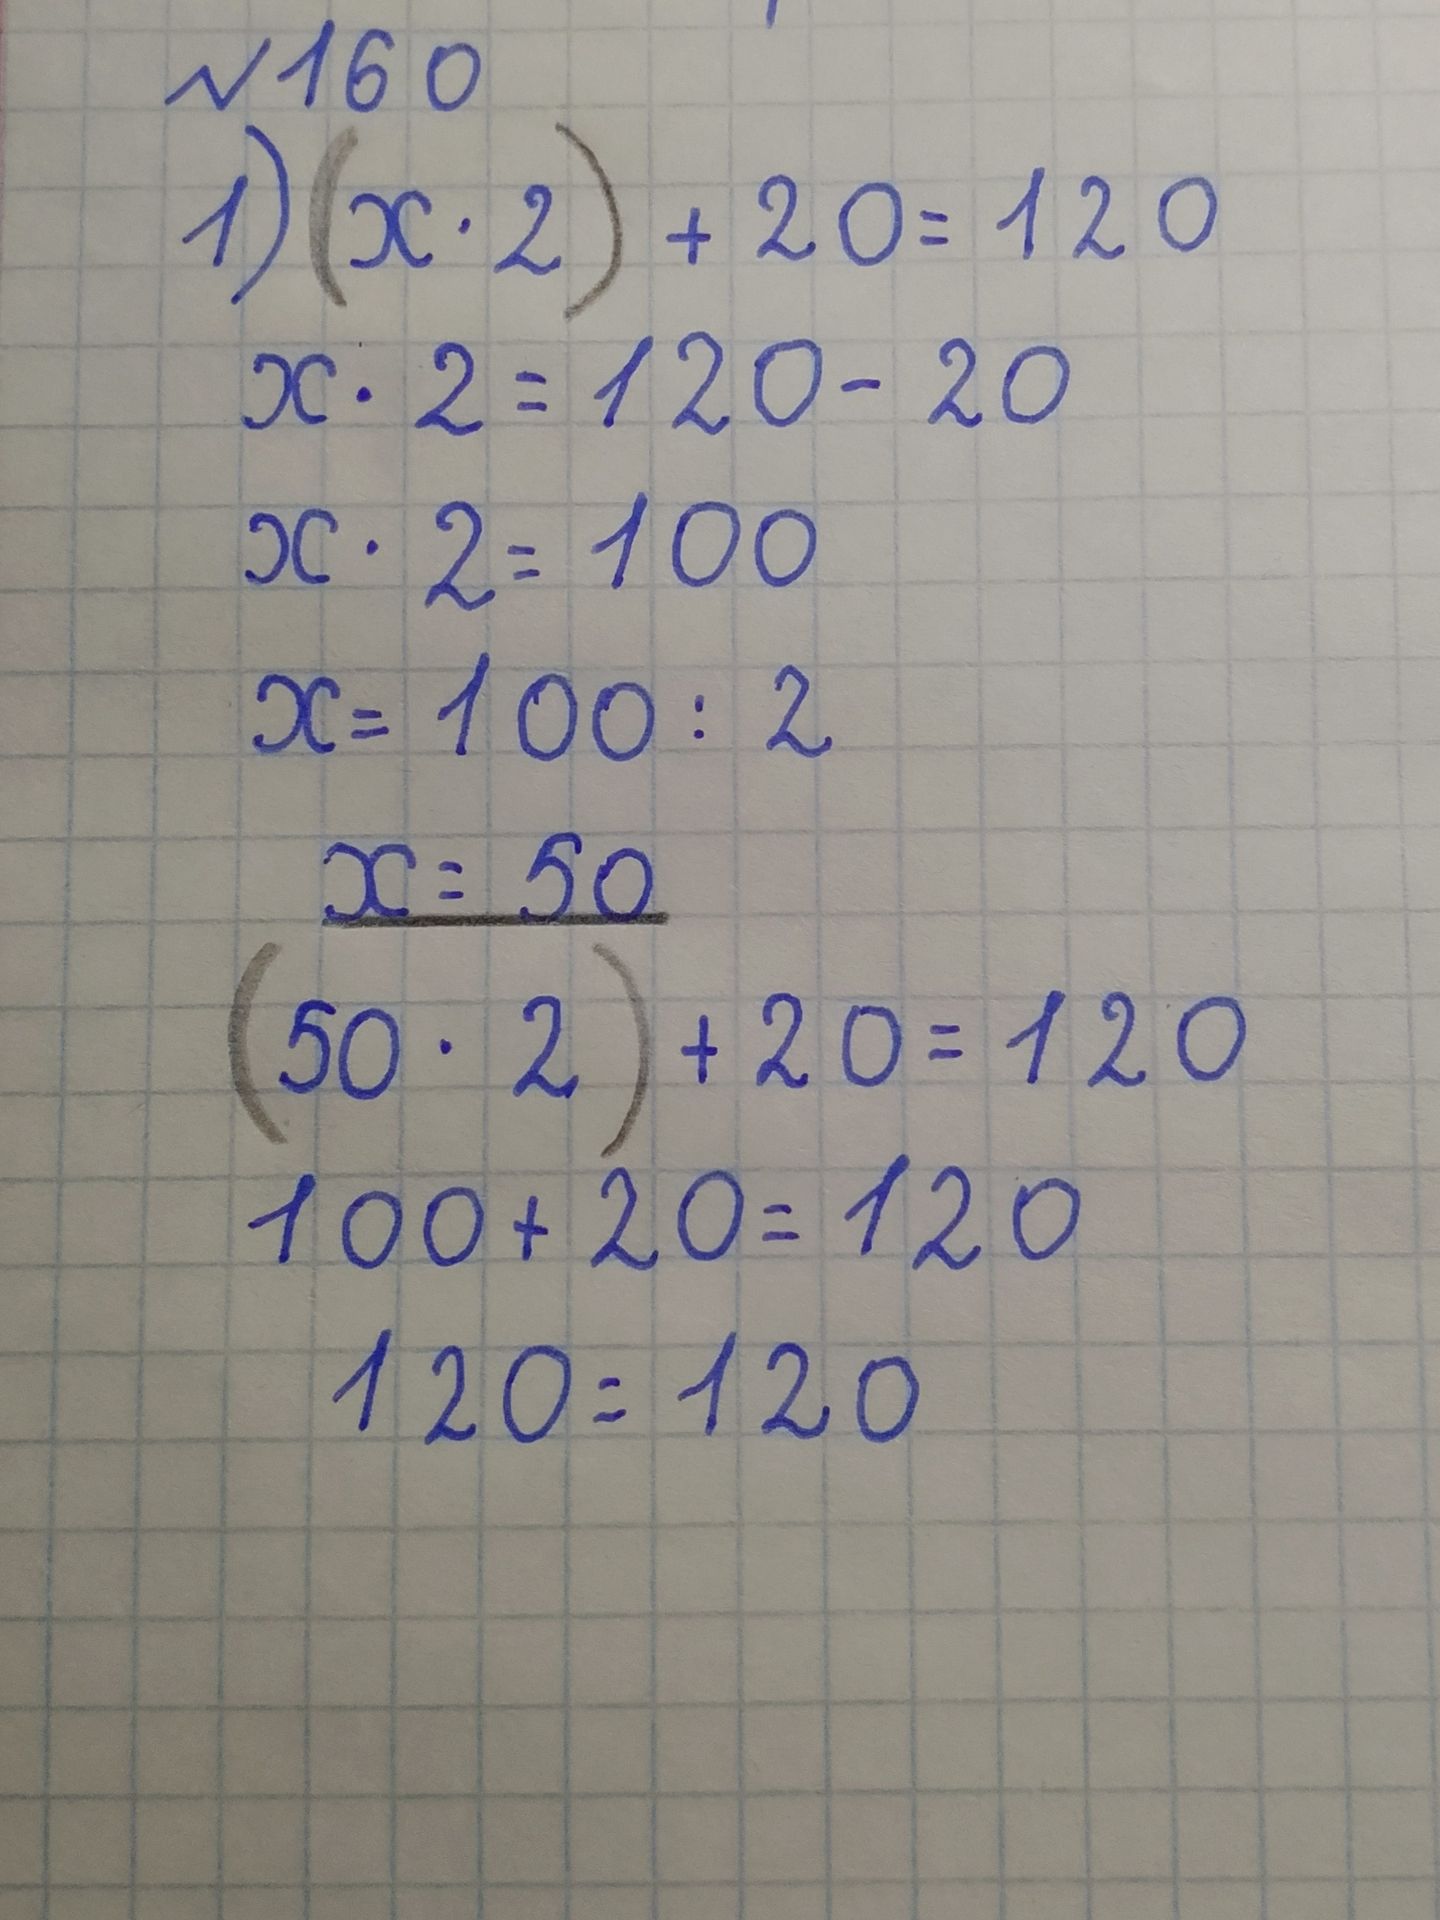 №160
1) (x · 2) + 20 = 120
x · 2 = 120 - 20
x · 2 = 100
x = 100 : 2
x = 50
(50 · 2) + 20 = 120
100 + 20 = 120
120 = 120